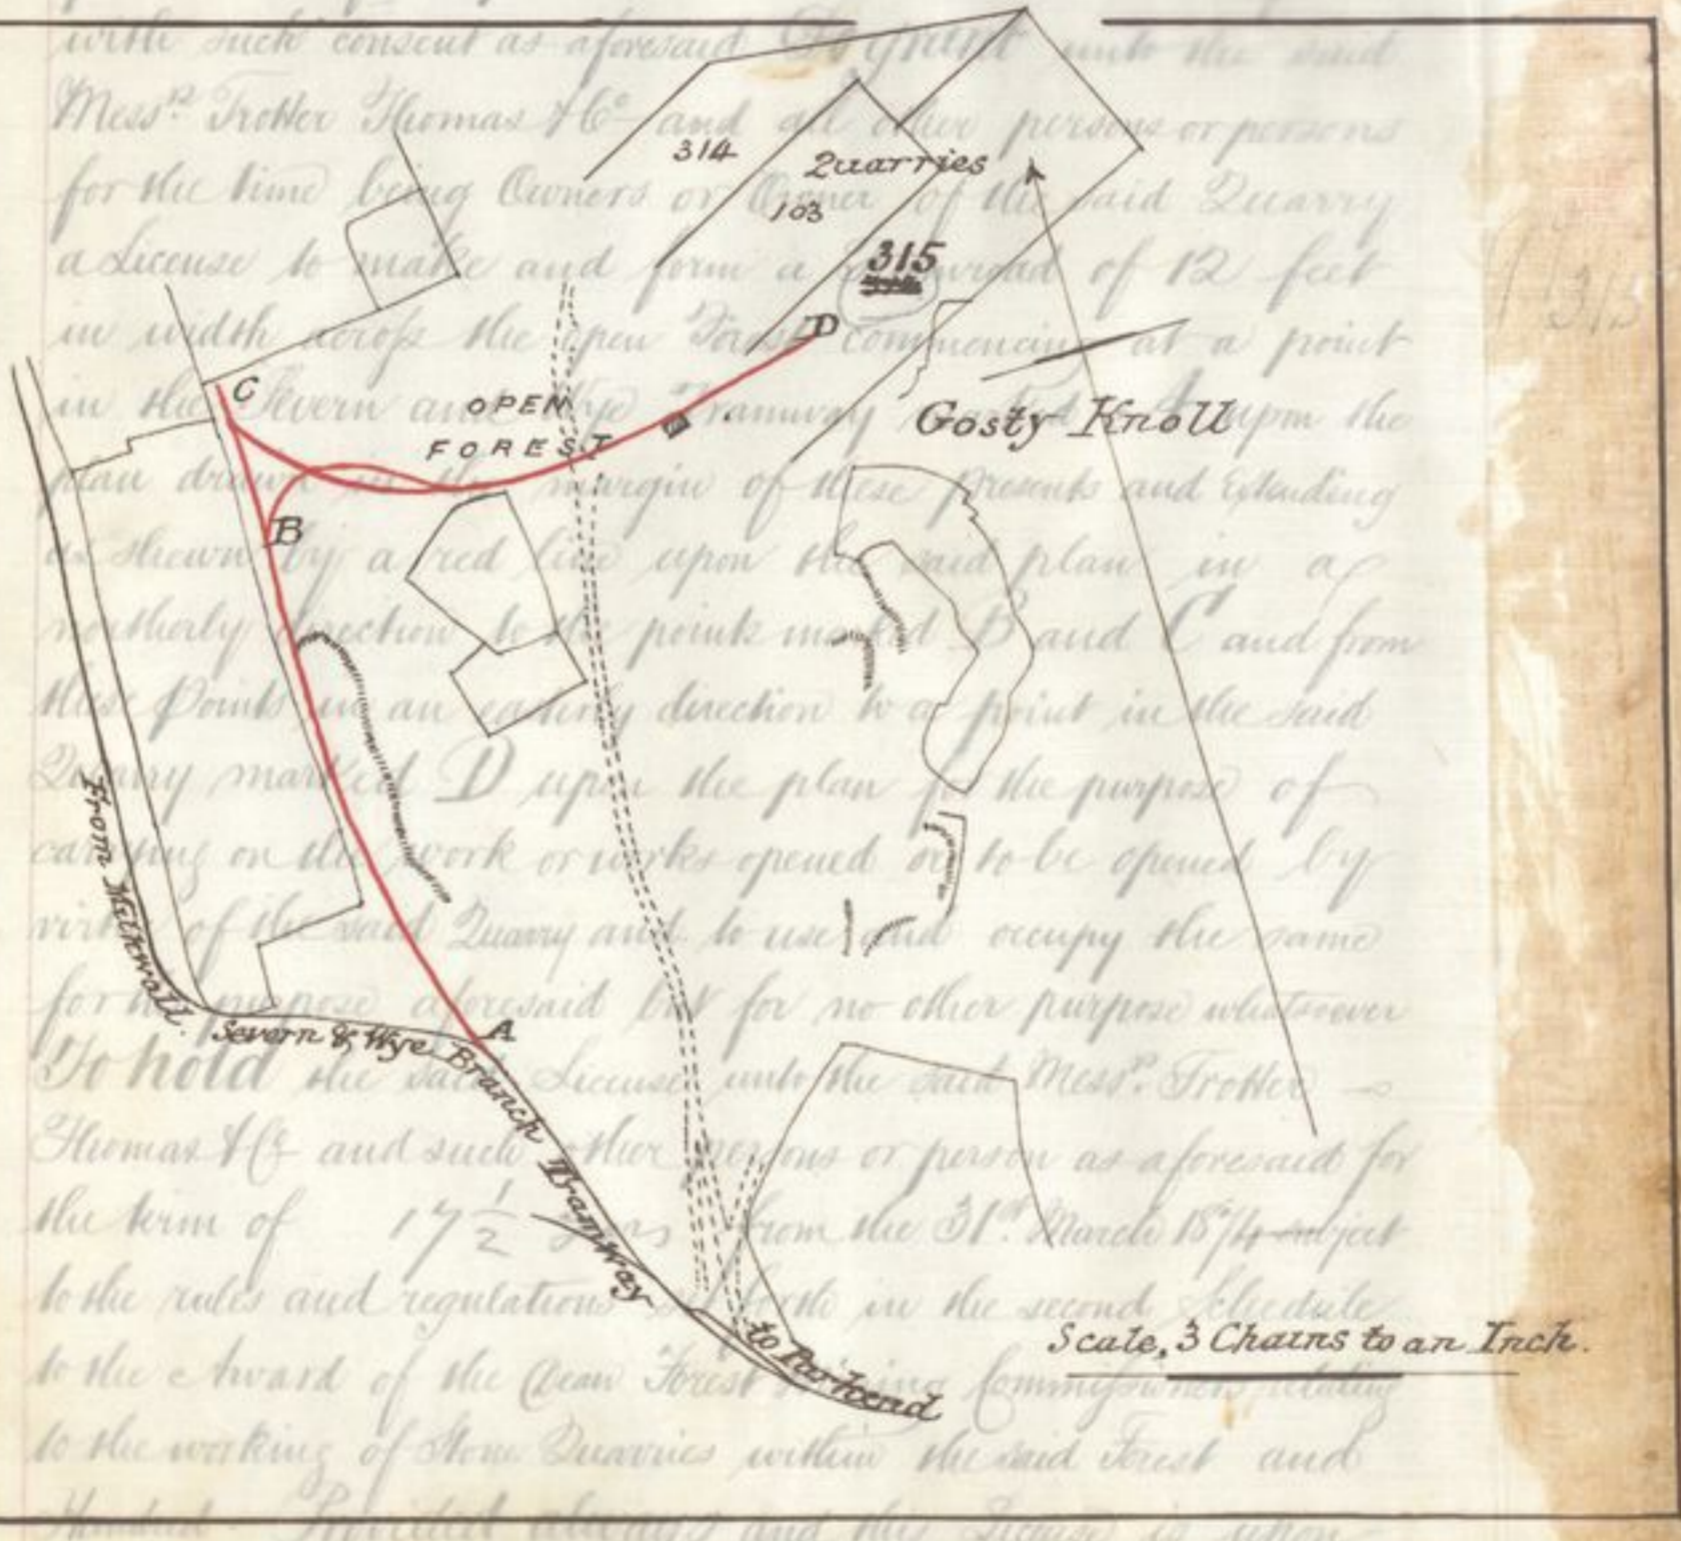 with such consent as aforesaid unto the said
Mess.rs Trotter Thomas & Co and all other persons or persons
for the time being Owners or Owner of the said Quarry
a License to make and form a of 12 feet
in width across the open Forest commencing at a point
in the Severn and Wye Tramway upon the
plan drawn in the margin of these presents and Extending
as shewn by a red line upon the said plan in a
northerly direction to the points marked B and C and from
these Points in an easterly direction to a point in the said
Quarry marked D upon the plan for the purpose of
carrying on the work or works opened or to be opened by
virtue of the said Quarry and to use and occupy the same
for the purpose aforesaid but for no other purpose whatsoever
To hold the said License unto the said Mess.rs Trotter
Thomas & Co and such other persons or person as aforesaid for
the term of 17 1/2 years from the 31st March 1874 subject
to the rules and regulations set forth in the second Schedule
to the Award of the Dean Forest Commissioners relating
to the working of Stone Quarries within the said Forest and
314
Quarries
103
315
D
C
OPEN
FOREST
Gosty Knoll
B
From Milkwall.
A
Severn & Wye Branch Tramway to Parkend
Scale, 3 Chains to an Inch.